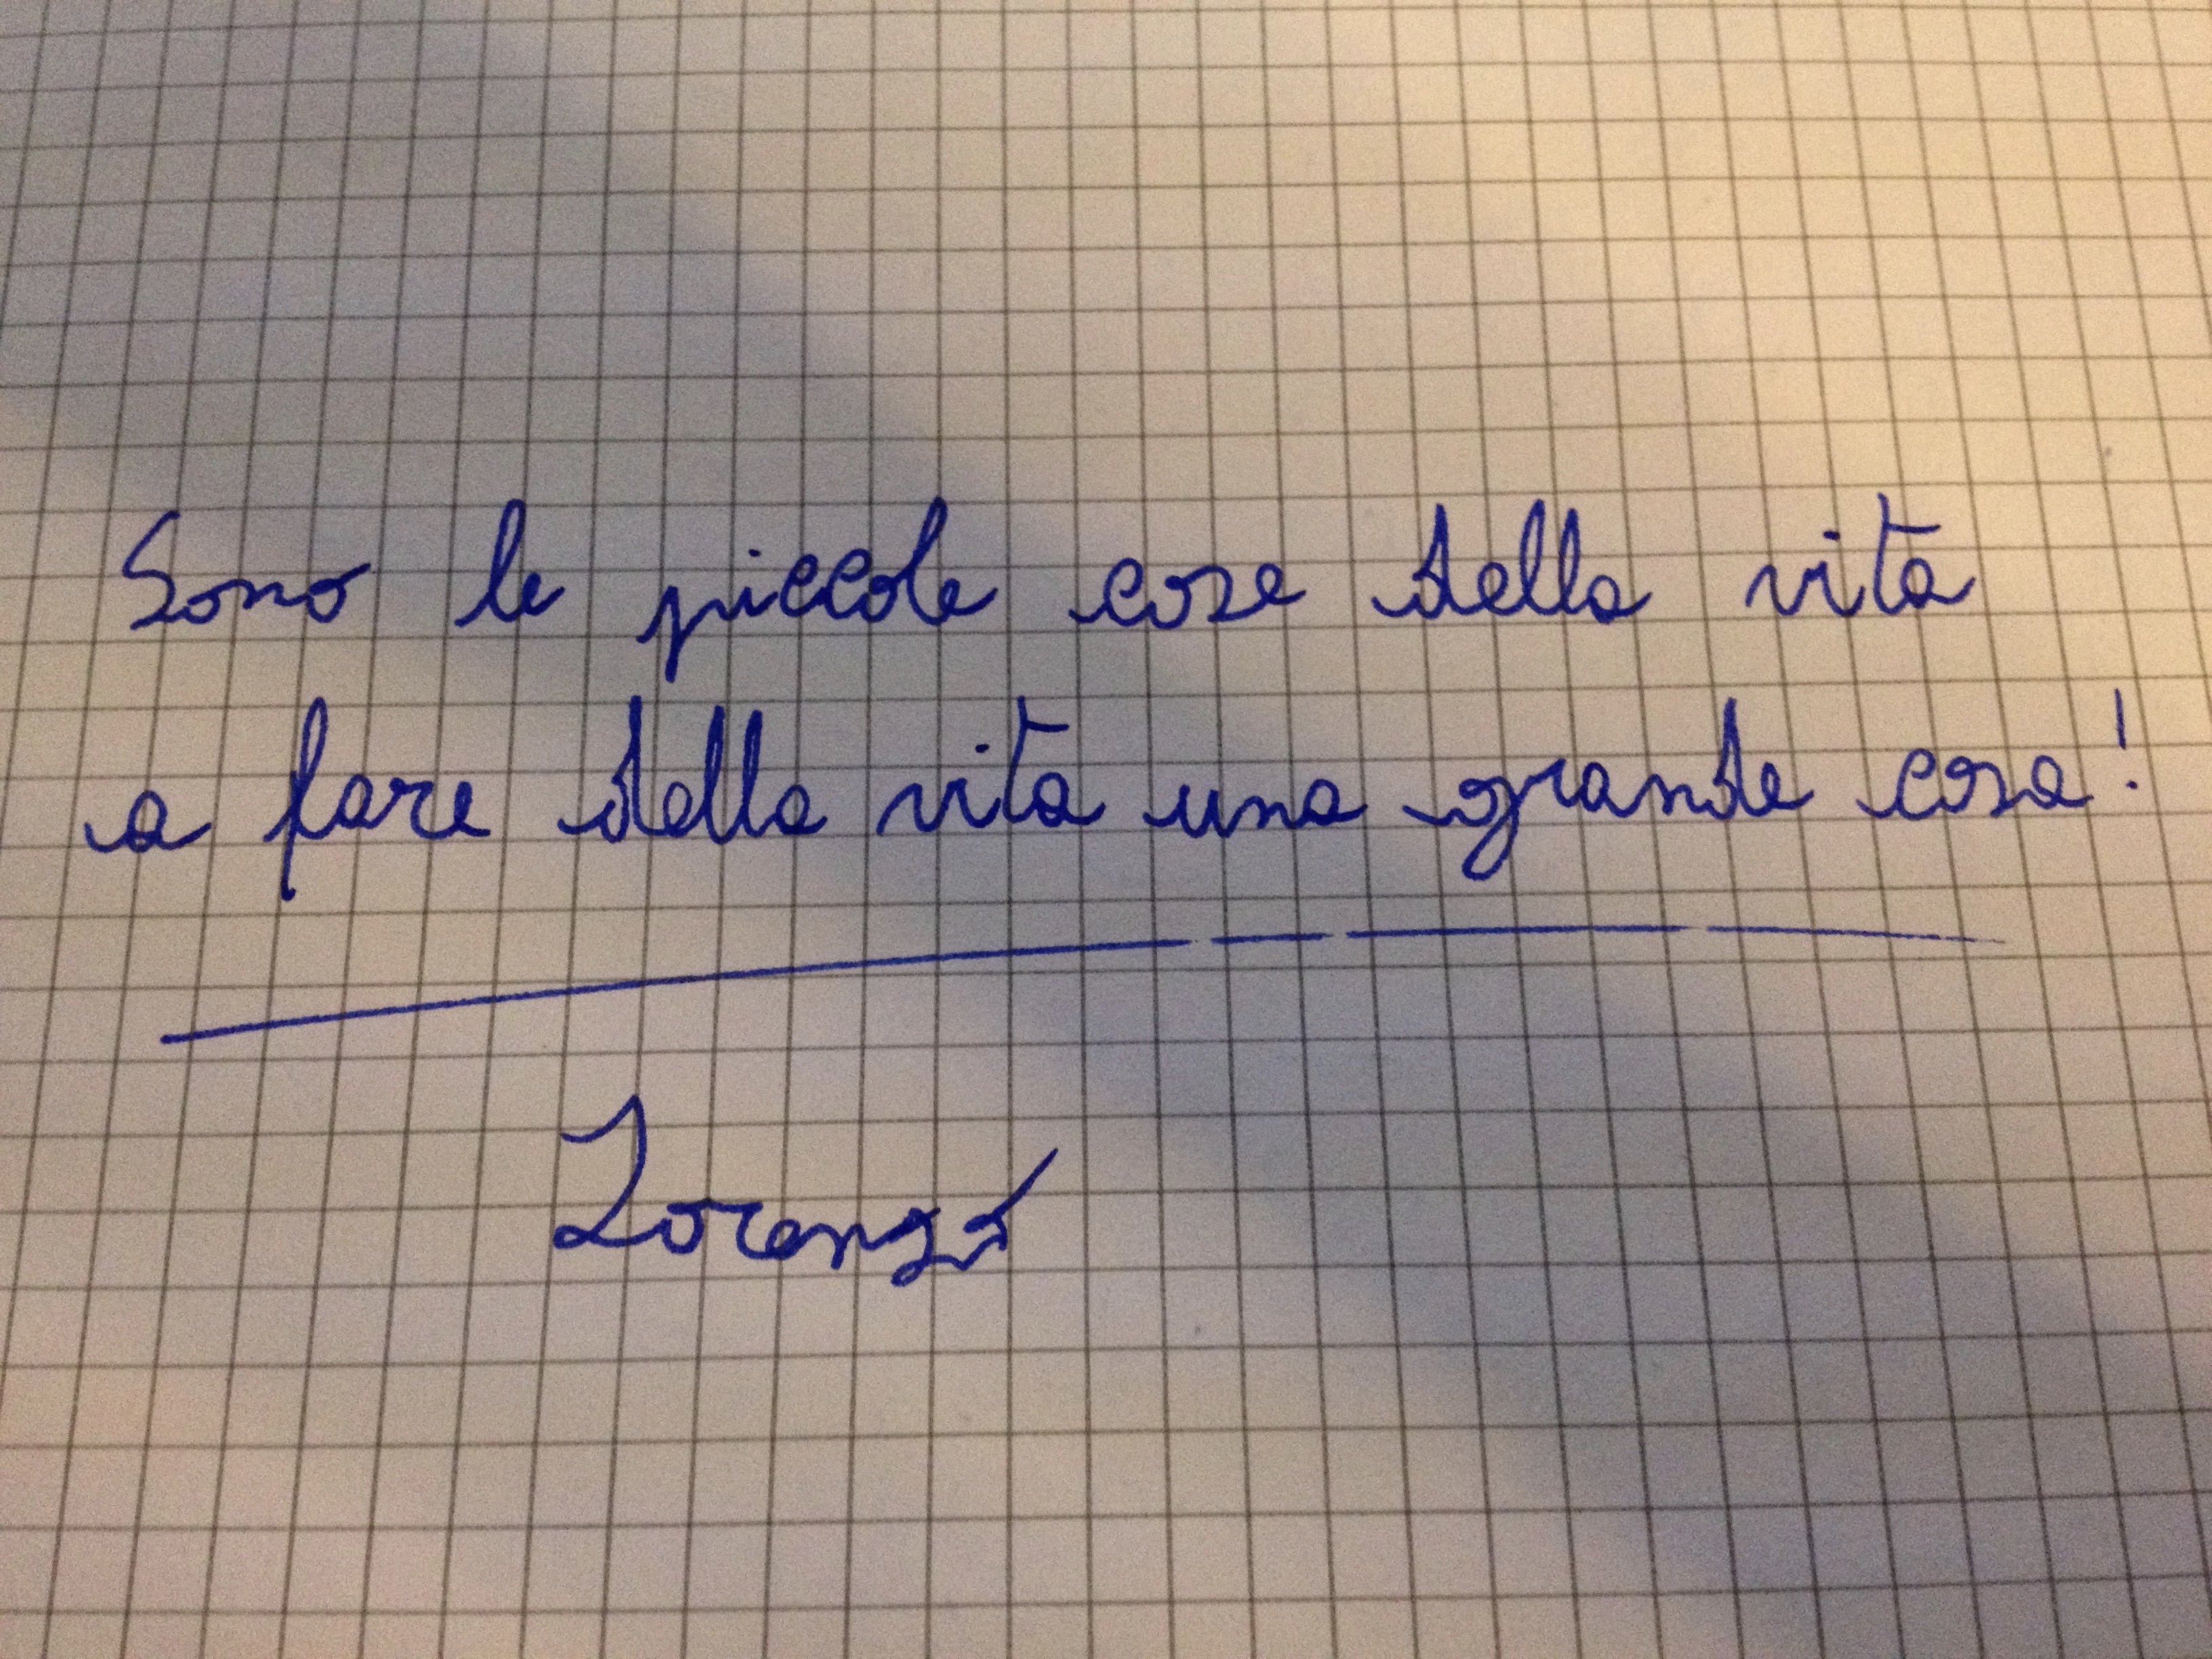 Sono le piccole cose della vita
a fare della vita una grande cosa!
Lorenzo